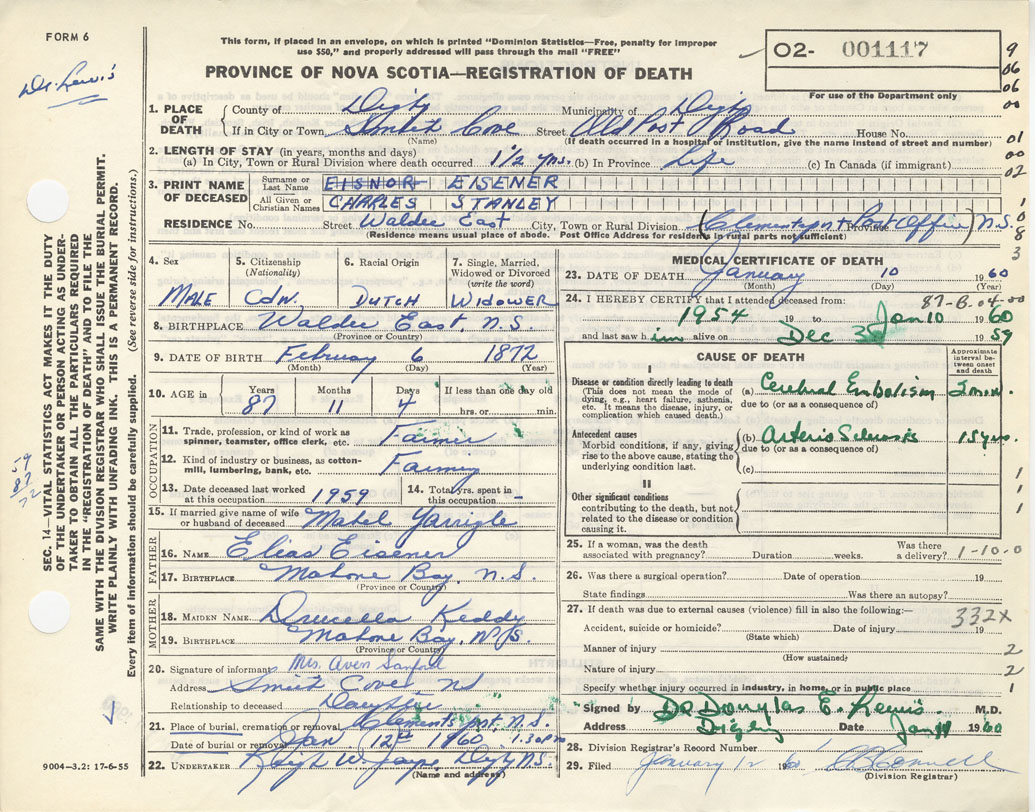 FORM 6
This form, if placed in an envelope, on which is printed "Dominion Statistics—Free, penalty for improper
use $50," and properly addressed will pass through the mail "FREE"
O2- 001117
For use of the Department only
PROVINCE OF NOVA SCOTIA—REGISTRATION OF DEATH
Dr. Lewis
9
06
06
00
01
00
02
1
0
8
3
1. PLACE OF DEATH { County of Digby Municipality of Digby
If in City or Town Smith's Cove Street Old Post Road House No.
(Name) (If death occurred in a hospital or institution, give the name instead of street and number)
2. LENGTH OF STAY (in years, months and days)
(a) In City, Town or Rural Division where death occurred 1 1/2 yrs. (b) In Province Life (c) In Canada (if immigrant)
3. PRINT NAME OF DECEASED { Surname or Last Name EISNOR EISENER
All Given or Christian Names CHARLES STANLEY
RESIDENCE No. Street Waldec East City, Town or Rural Division (Clementsport Post Office) Province N.S.
(Residence means usual place of abode. Post Office Address for residents in rural parts not sufficient)
4. Sex MALE
5. Citizenship (Nationality) CDN.
6. Racial Origin DUTCH
7. Single, Married, Widowed or Divorced (write the word) WIDOWER
8. BIRTHPLACE Waldec East, N.S.
(Province or Country)
9. DATE OF BIRTH February 6 1872
(Month) (Day) (Year)
10. AGE in { Years 87 Months 11 Days 4 If less than one day old hrs. or min.
OCCUPATION
11. Trade, profession, or kind of work as spinner, teamster, office clerk, etc. Farmer
12. Kind of industry or business, as cotton-mill, lumbering, bank, etc. Farming
13. Date deceased last worked at this occupation 1959
14. Total yrs. spent in this occupation -
15. If married give name of wife or husband of deceased Mabel
FATHER
16. NAME Elias Eisener
17. BIRTHPLACE Mahone Bay, N.S.
(Province or Country)
MOTHER
18. MAIDEN NAME Drucella Keddy
19. BIRTHPLACE Mahone Bay, N.S.
(Province or Country)
20. Signature of informant Mrs. Aven Sanford
Address Smith's Cove NS
Relationship to deceased Daughter
21. Place of burial, cremation or removal Clementsport, N.S.
Date of burial or removal Jan 12th 1960 1.30pm
22. UNDERTAKER W Jayne, Digby N.S.
(Name and address)
9004—3.2: 17-6-55
MEDICAL CERTIFICATE OF DEATH
23. DATE OF DEATH January 10 1960
(Month) (Day) (Year)
24. I HEREBY CERTIFY that I attended deceased from: 87-B.04-00
1954 19 to Jan 10 1960
and last saw him alive on Dec 1959
CAUSE OF DEATH
Approximate interval between onset and death
I
Disease or condition directly leading to death
(This does not mean the mode of dying, e.g., heart failure, asthenia, etc. It means the disease, injury, or complication which caused death.)
(a) Cerebral Embolism
due to (or as a consequence of)
Antecedent causes
Morbid conditions, if any, giving rise to the above cause, stating the underlying condition last.
(b) Arterio Sclerosis 15 yrs.
due to (or as a consequence of)
(c)
1
1
1
II
Other significant conditions
contributing to the death, but not related to the disease or condition causing it.
25. If a woman, was the death associated with pregnancy? Duration weeks. Was there a delivery? 1-10-0
26. Was there a surgical operation? Date of operation 19
State findings Was there an autopsy?
27. If death was due to external causes (violence) fill in also the following:— 332X
Accident, suicide or homicide? Date of injury 19
(State which)
Manner of injury 2
(How sustained)
Nature of injury 2
Specify whether injury occurred in industry, in home, or in public place 1
Signed by Dr Douglas E. Lewis M.D.
Address Digby Date Jan 1960
28. Division Registrar's Record Number
29. Filed January 12 1960
(Division Registrar)
SEC. 14—VITAL STATISTICS ACT MAKES IT THE DUTY
OF THE UNDERTAKER OR PERSON ACTING AS UNDER-
TAKER TO OBTAIN ALL THE PARTICULARS REQUIRED
IN THE "REGISTRATION OF DEATH" AND TO FILE THE
SAME WITH THE DIVISION REGISTRAR WHO SHALL ISSUE THE BURIAL PERMIT.
WRITE PLAINLY WITH UNFADING INK. THIS IS A PERMANENT RECORD.
Every item of information should be carefully supplied. (See reverse side for instructions.)
59
87
72